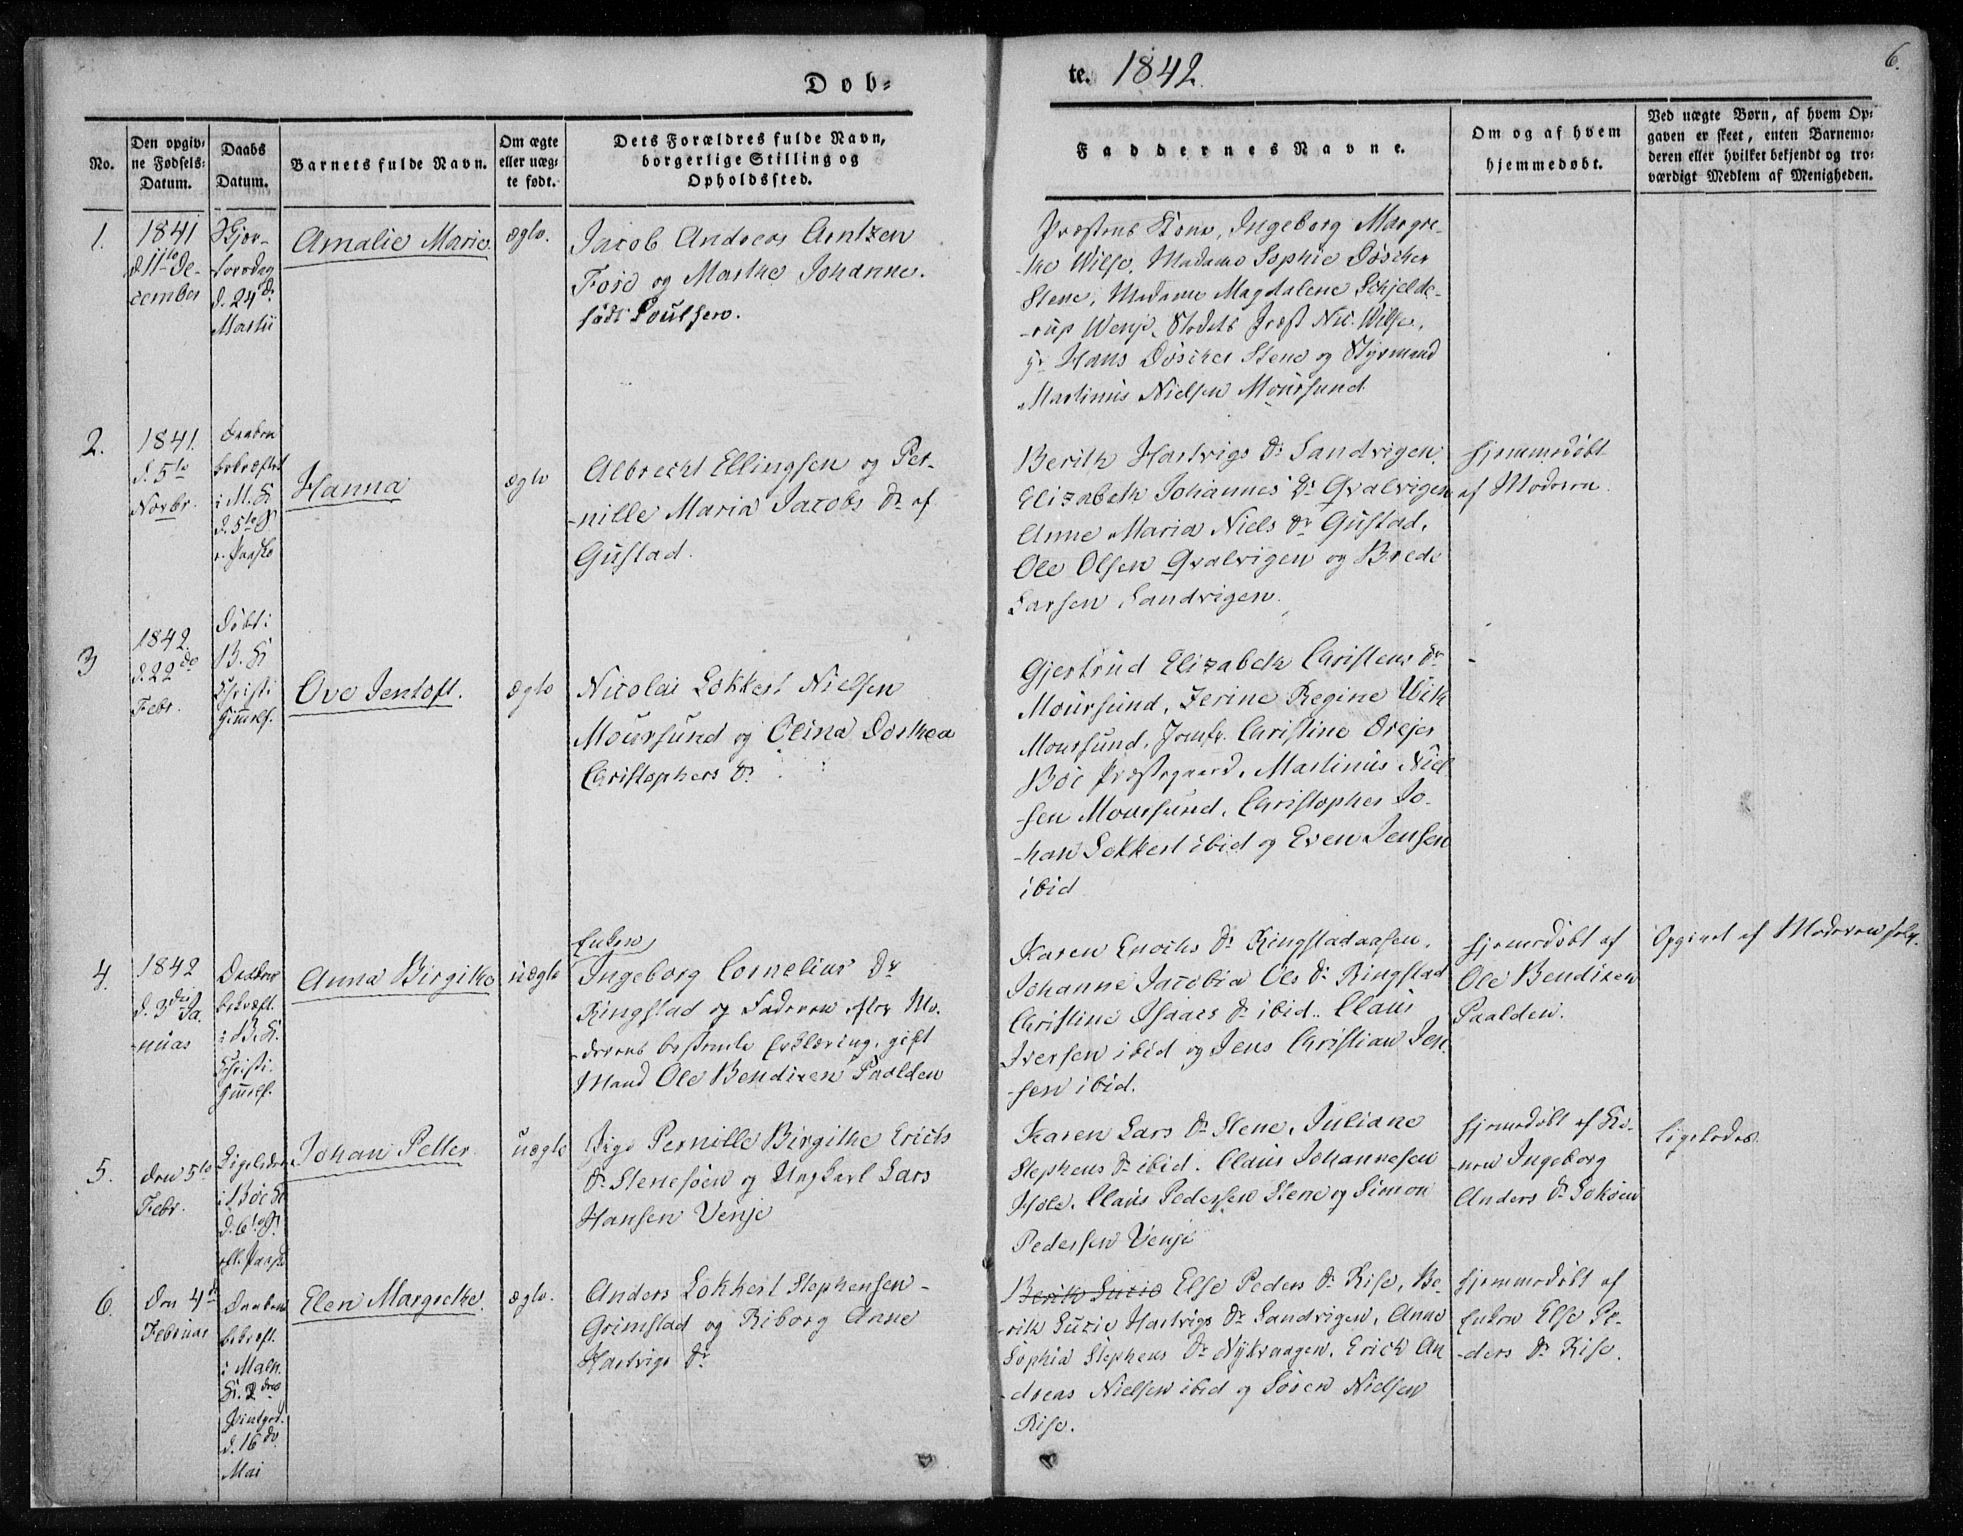 Døb=
te. 1842.
6.
No.
Den opgiv=
ne Fødsels=
Datum.
Daabs
Datum.
Barnets fulde Navn.
Om ægte
eller uæg=
te født.
Dets Forældres fulde Navn,
borgerlige Stilling og
Opholdssted.
Faddernes Navne.
Om og af hvem
hjemmedøbt.
Ved uægte Børn, af hvem Op=
gaven er skeet, enten Barnemo=
deren eller hvilket bekjendt og tro=
værdigt Medlem af Menigheden.
1.
1841
d. 11te De-
cember
Skjær-
torsdag
d. 24de
Martii
Amalie Marie
ægte.
Jacob Andreas Arntzen
Fose og Marthe Johanne
født Poulsen.
Præstens Kone, Ingeborg Margre-
the Wilse, Madame Sophie Døscher
Stene, Madame Magdalene Schjelde-
-rup Wenje, Stedets Præst Nic. Wilse,
Hr Hans Døscher Stene og Styrmand
Martinus Nielsen Moursund
2.
1841.
d. 5te
Novbr.
Daaben
bekræftet
i M. K
d. 5te S
e. Paaske
Hanna
ægte
Albrecht Ellingsen og Per-
-nille Maria Jacobs Dr af
Gustad.
Berith Hartvigs Dr Sandvigen,
Elizabeth Johannes Dr Qvalvigen
Anne Maria Niels Dr Gustad,
Ole Olsen Qvalvigen og Brede
Larsen Sandvigen.
hjemmedøbt
af Moderen.
3
1842.
d. 22de
Febr.
Døbt i
B. K
Christi
Himmelf.
Ove Jentoft.
ægte
Nicolai Lokkert Nielsen
Moursund og Olina Dorthea
Christophers Dr
Gjertrud Elizabeth Christens Dr
Moursund, Zerine Regine With
Moursund, Jomfr. Christine Drejer
Bøe Præstegaard, Martinus Niel
sen Moursund, Christopher Jo-
-han Lokkert ibid og Even Jensen
ibid
4.
1842
d. 3die Ja-
-nuar
Daaben
bekræft.
i B. K.
Christi
Himmelf.
Anna Birgithe
uægte
Enken
Ingeborg Cornelius Dr
Ringstad og Faderen efter Mo-
-derens bestemte Erklæring, gift
Mand Ole Bendixen Paalden
Karen Enochs Dr Ringstadaasen,
Johanne Jacobia Ols Dr Ringstad
Christine Isaacs Dr ibid. Claus
Iversen ibid og Jens Christian Jen-
-sen ibid.
hjemedøbt af
Ole Bendixen
Paalden.
Opgivet af Moderen selv.
5.
den 5te
Febr.
Ligeledes
i Bøe K
d. 6te S.
eft. Paaske
Johan Petter
uægte
Pige Pernille Birgithe Erichs
Dr Stenesøen og Ungkarl Lars
Hansen Venje
Karen Lars Dr Stene, Juliane
Stephens Dr ibid. Claus Johannesen
Hole. Claus Pedersen Stene og Simon
Pedersen Venje
hjemedøbt af Ko-
-nen Ingeborg
Anders Dr
ligeledes.
6.
Den 4de
Februar
Daaben
bekræft.
i Maln.
K. 2den
Pintsed.
d. 16de
Mai
Elen Margrethe.
ægte.
Anders Lokkert Stephensen
Grimstad og Riborg Anne
Hartvigs Dr
Berith Lucie Else Peders Dr Rise, Be-
-rith Lucie Hartvigs Dr Sandvigen, Anne
Sophia Stephens Dr Nykvaagen, Erich An
-dreas Nielsen ibid og Søren Nielsen
Rise.
hjemmedøbt af
Enken Else Pe-
-ders Dr Rise.